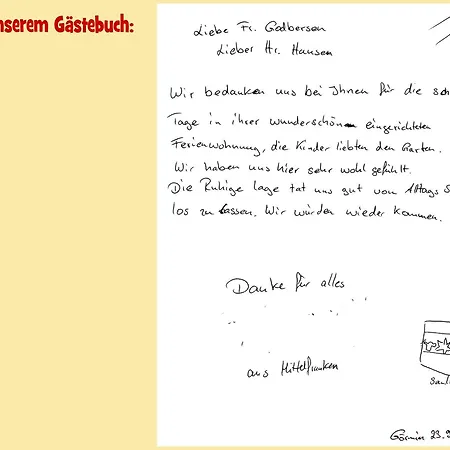 nserem Gästebuch:
Liebe Fr. Godbersen
Lieber Hr. Hansen
Wir bedanken uns bei Ihnen für die sch
Tage in ihrer wunderschön eingerichteten
Ferienwohnung, die Kinder liebten den Garten.
Wir haben uns hier sehr wohl gefühlt.
Die Ruhige lage tat uns gut vom Alltags S
los zu lassen. Wir würden wieder kommen.
Danke für alles
aus Mittelfranken